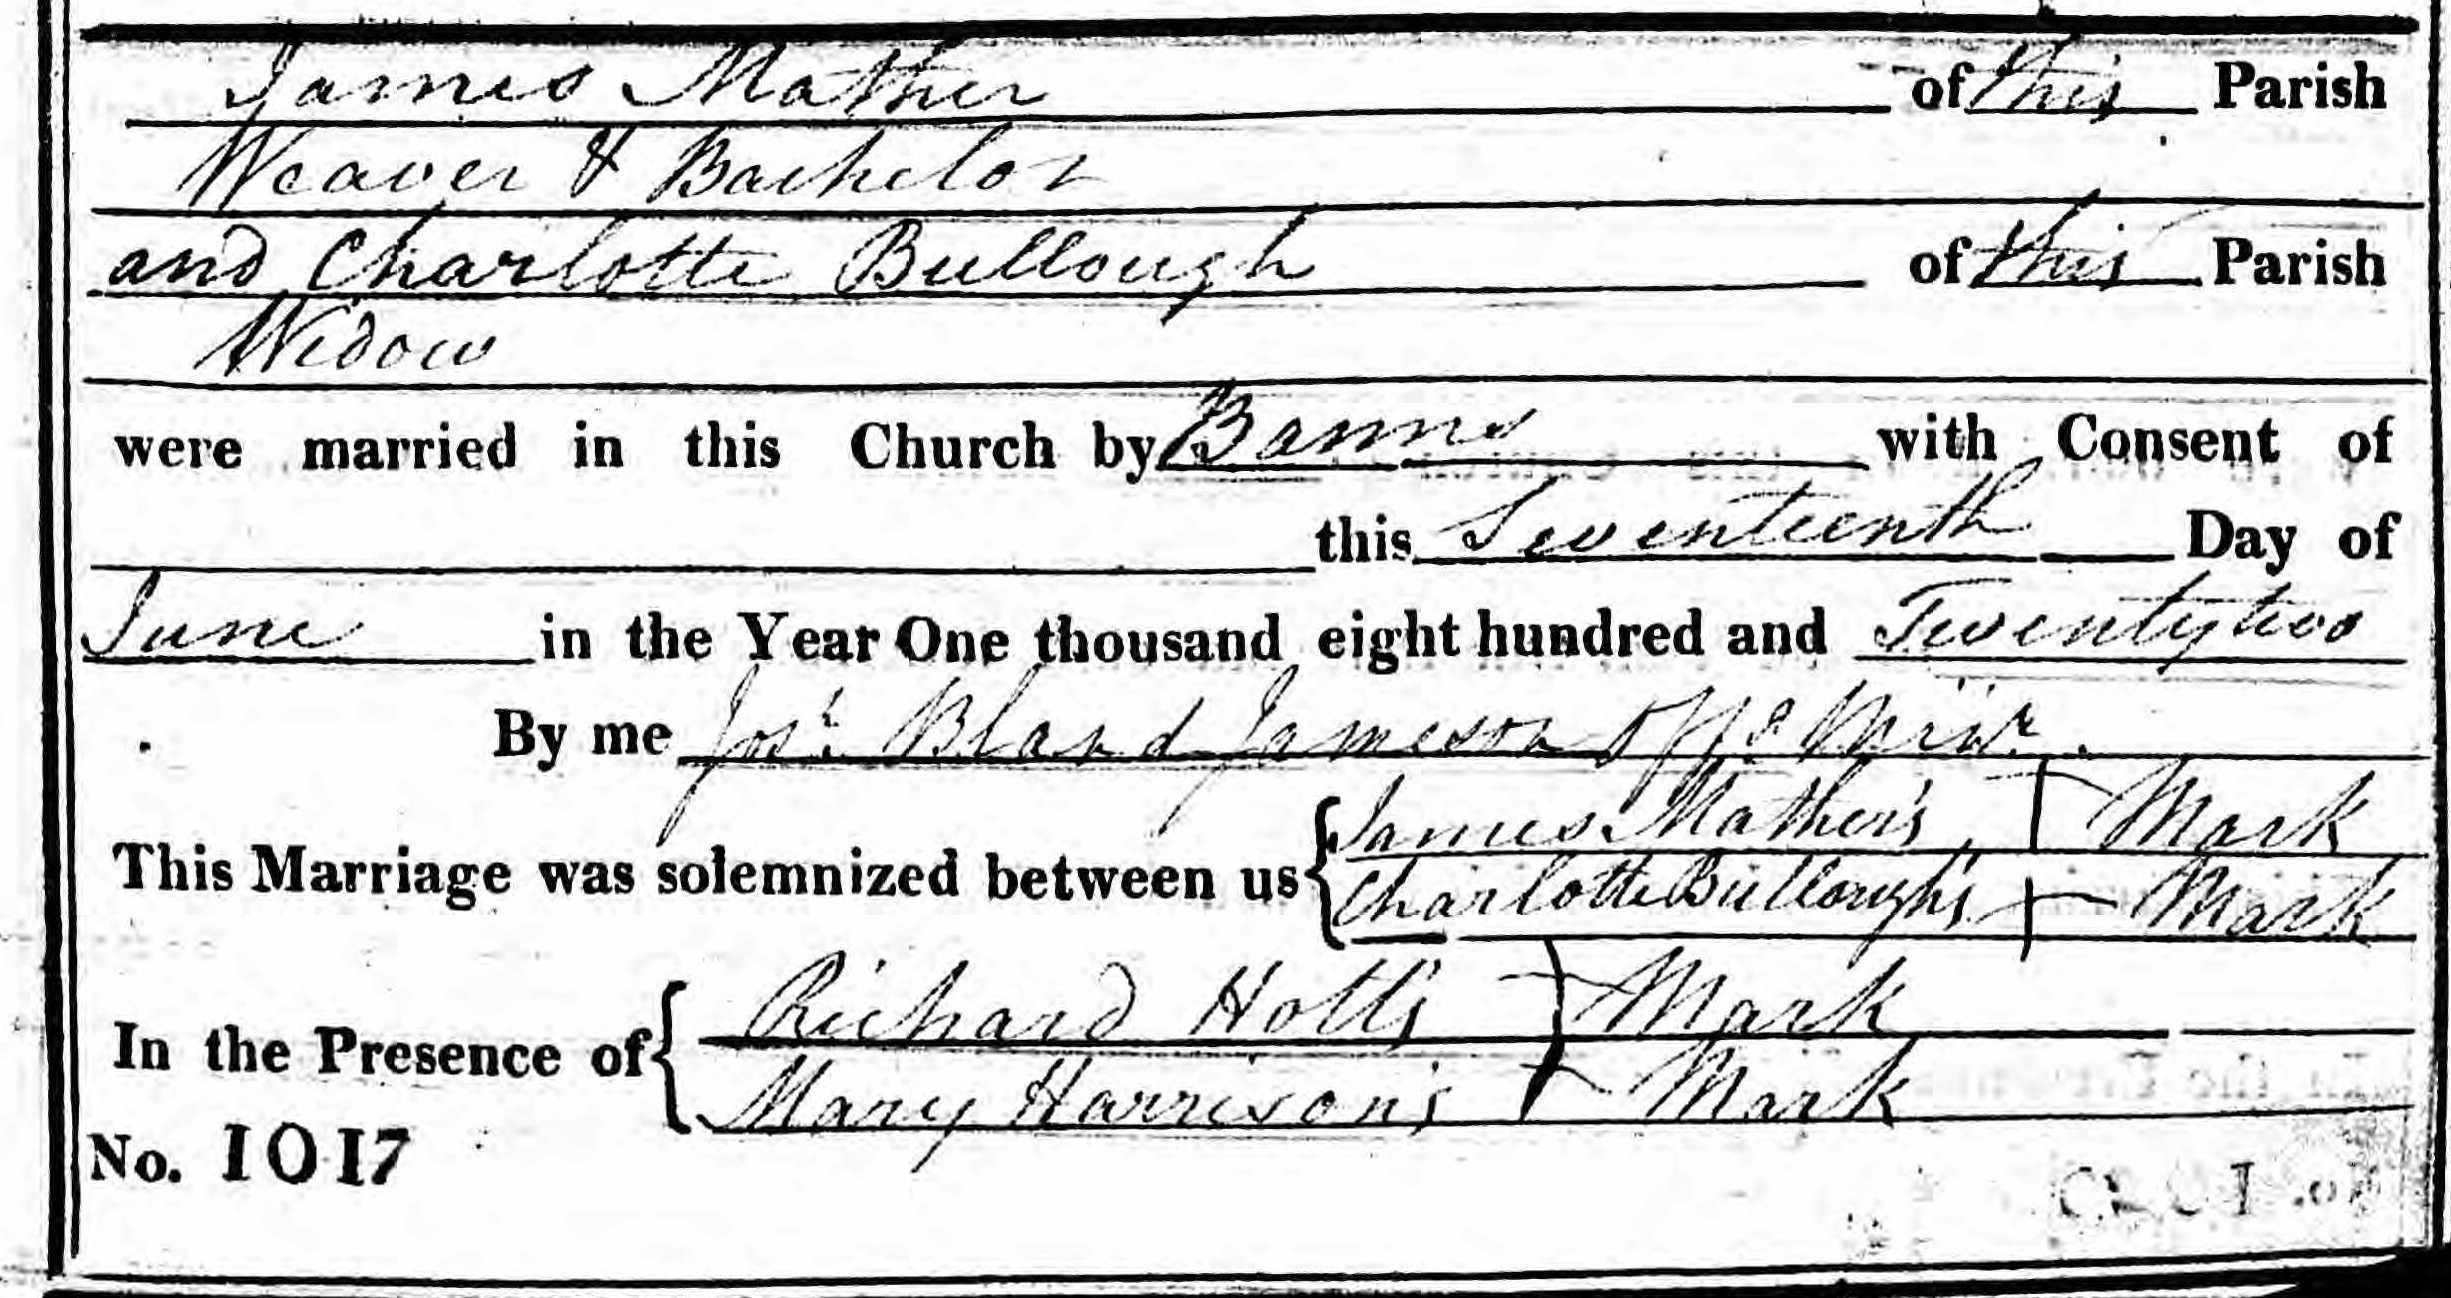 James Mather of this Parish
Weaver & Bachelor
and Charlotte Bullough of this Parish
Widow
were married in this Church by Banns with Consent of
this Seventeenth Day of
June in the Year One thousand eight hundred and Twenty two
By me Josh. Bland Jameson Offg Minr.
This Marriage was solemnized between us { James Mather's + Mark
Charlotte Bullough's + Mark
In the Presence of { Richard Holt's + Mark
Mary Harrison's + Mark
No. 1017